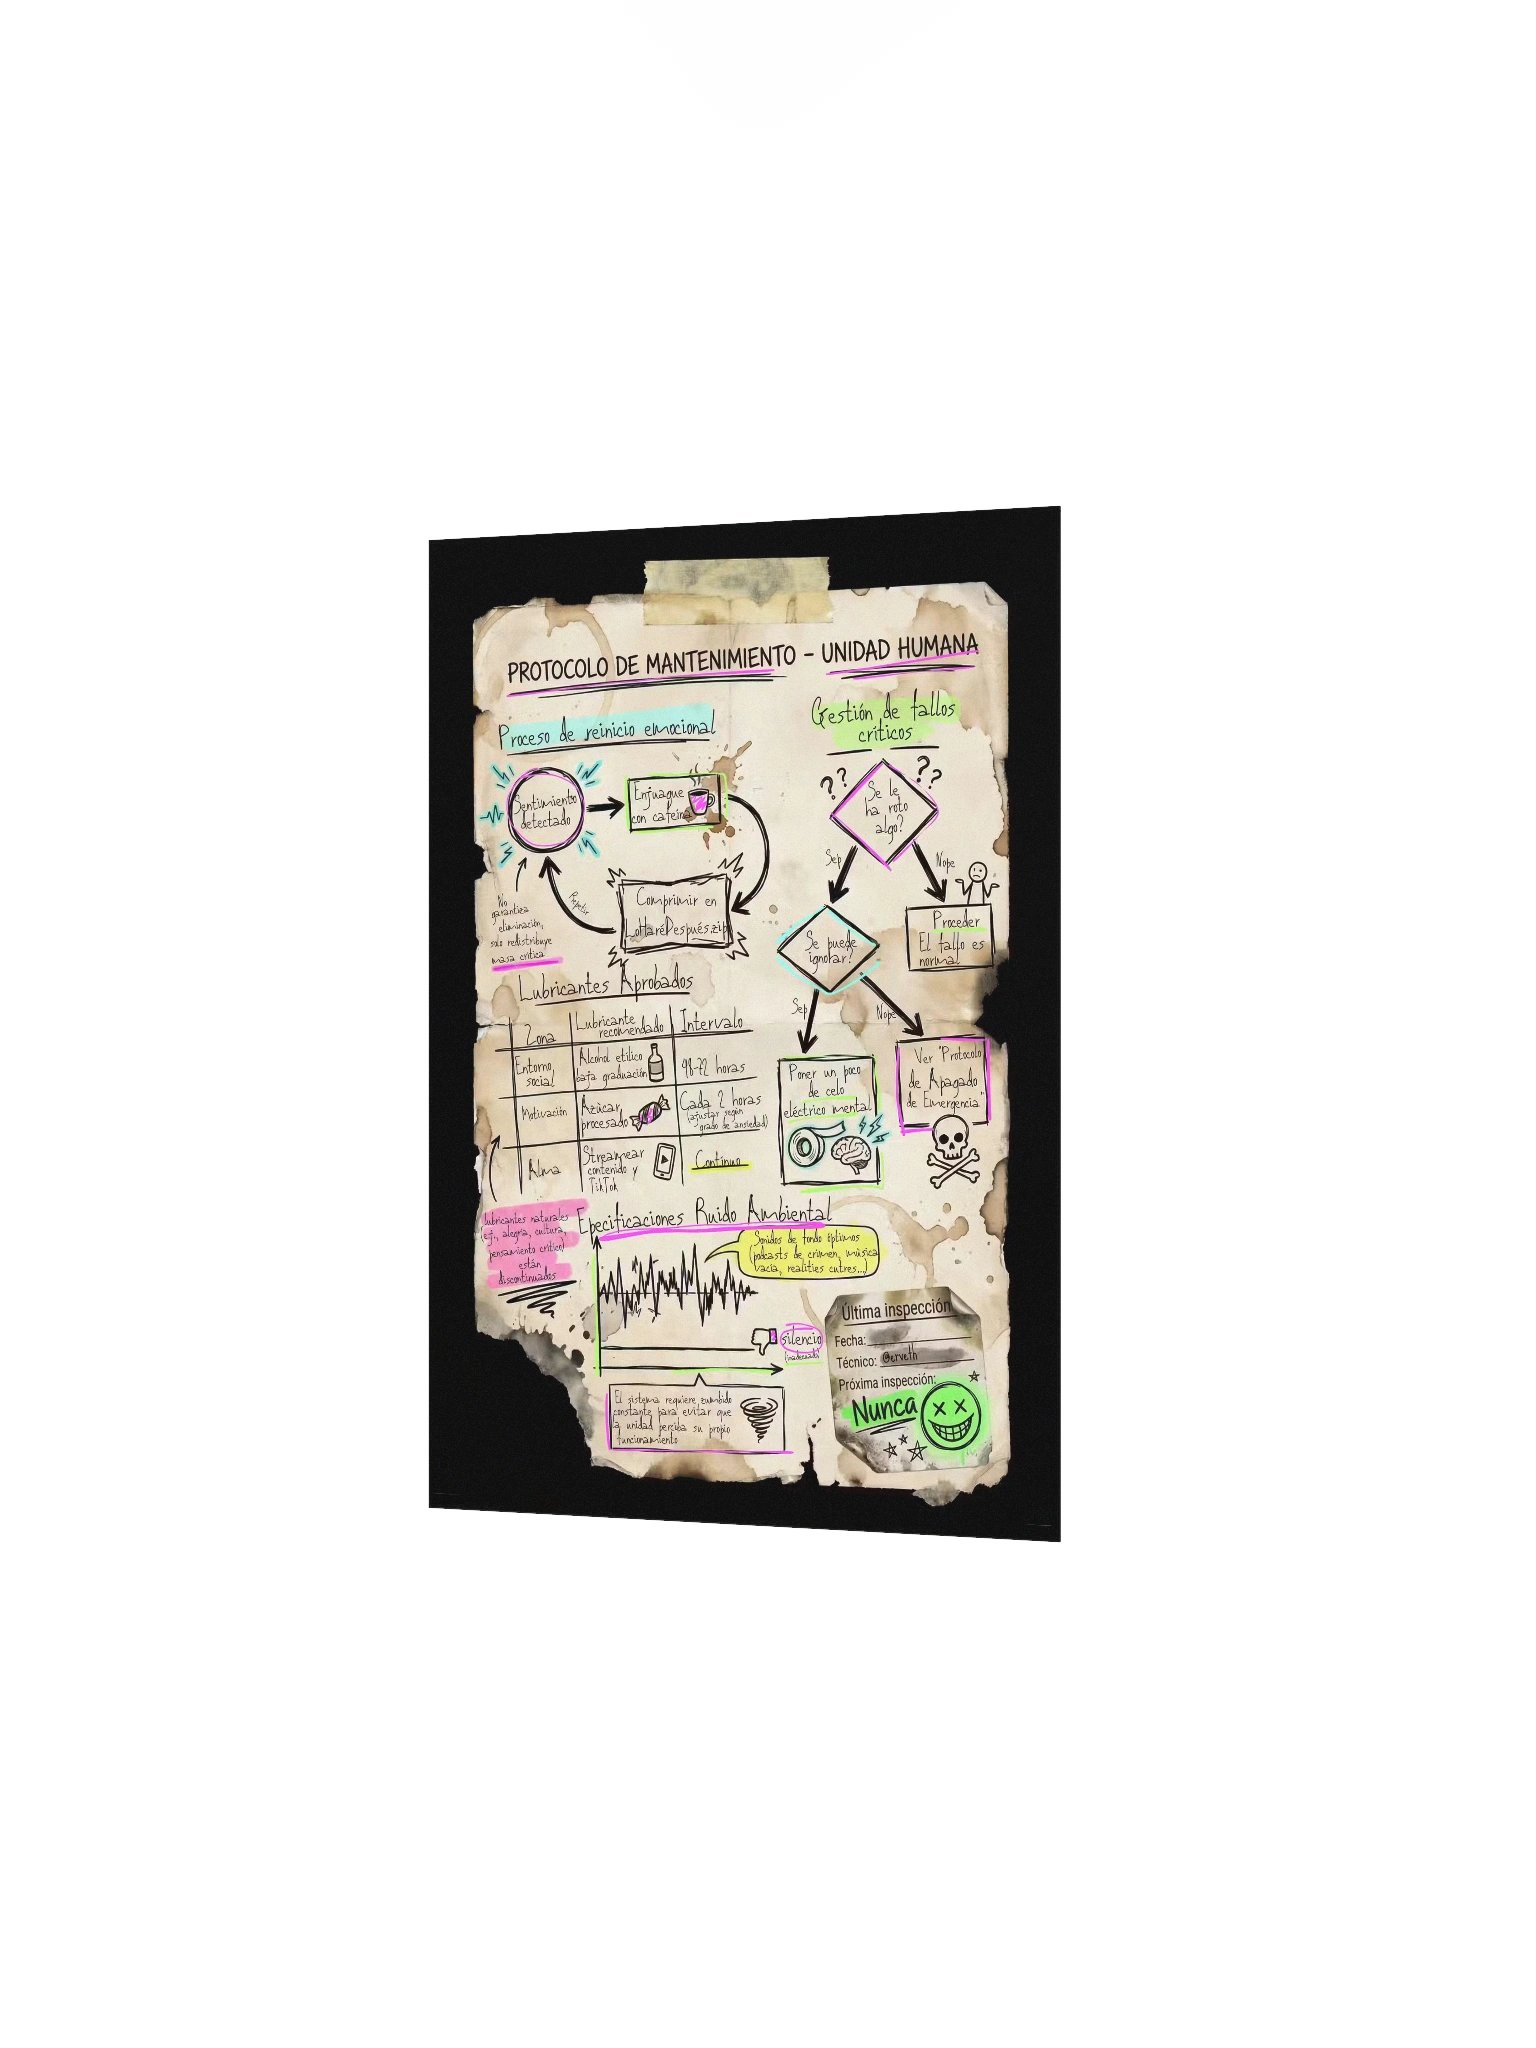 PROTOCOLO DE MANTENIMIENTO - UNIDAD HUMANA
Proceso de reinicio emocional
Sentimiento
detectado
Enjuague
con cafeína
Comprimir en
LoHaréDespués.zip
Repetir
No
garantiza
eliminación,
solo redistribuye
masa crítica
Gestión de fallos
críticos
??
??
Se le
ha roto
algo?
Sep
Nope
Proceder
El fallo es
normal
Se puede
ignorar?
Sep
Nope
Poner un poco
de celo
eléctrico mental
Ver "Protocolo
de Apagado
de Emergencia"
Lubricantes Aprobados
Zona
Lubricante
recomendado
Intervalo
Entorno
social
Alcohol etílico
baja graduación
48-72 horas
Motivación
Azúcar
procesado
Cada 2 horas
(ajustar según
grado de ansiedad)
Alma
Streamear
contenido y
TikTok
Continuo
lubricantes naturales
(ej., alegría, cultura,
pensamiento crítico)
están
discontinuados
Epecificaciones Ruido Ambiental
Sonidos de fondo óptimos
(podcasts de crimen, música
vacía, realities cutres...)
silencio
(inadecuado)
El sistema requiere zumbido
constante para evitar que
la unidad perciba su propio
funcionamiento
Última inspección
Fecha:
Técnico: @erveth
Próxima inspección:
Nunca